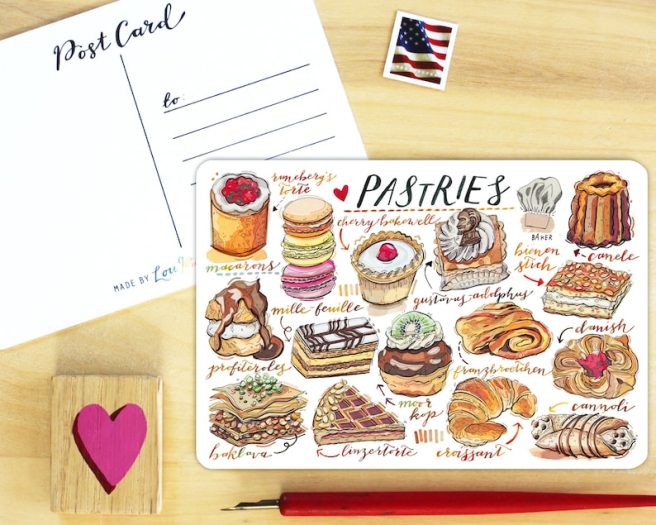 Post Card
to:
MADE BY Lou
PASTRIES
runeberg's
torte
cherry bakewell
BAKER
macarons
bienen
stich
canele
gustavus-adolphus
mille-feuille
danish
profiteroles
franzbroetchen
moor
kop
cannoli
baklava
linzertorte
croissant